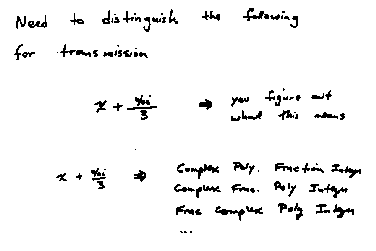 Need to distinguish the following
for transmission
x + 4/3 ⇒ you figure out
what this means
x + 4/3 ⇒ Complex Poly. Fraction Integer
Complex Frac. Poly Integer
Frac Complex Poly Integer